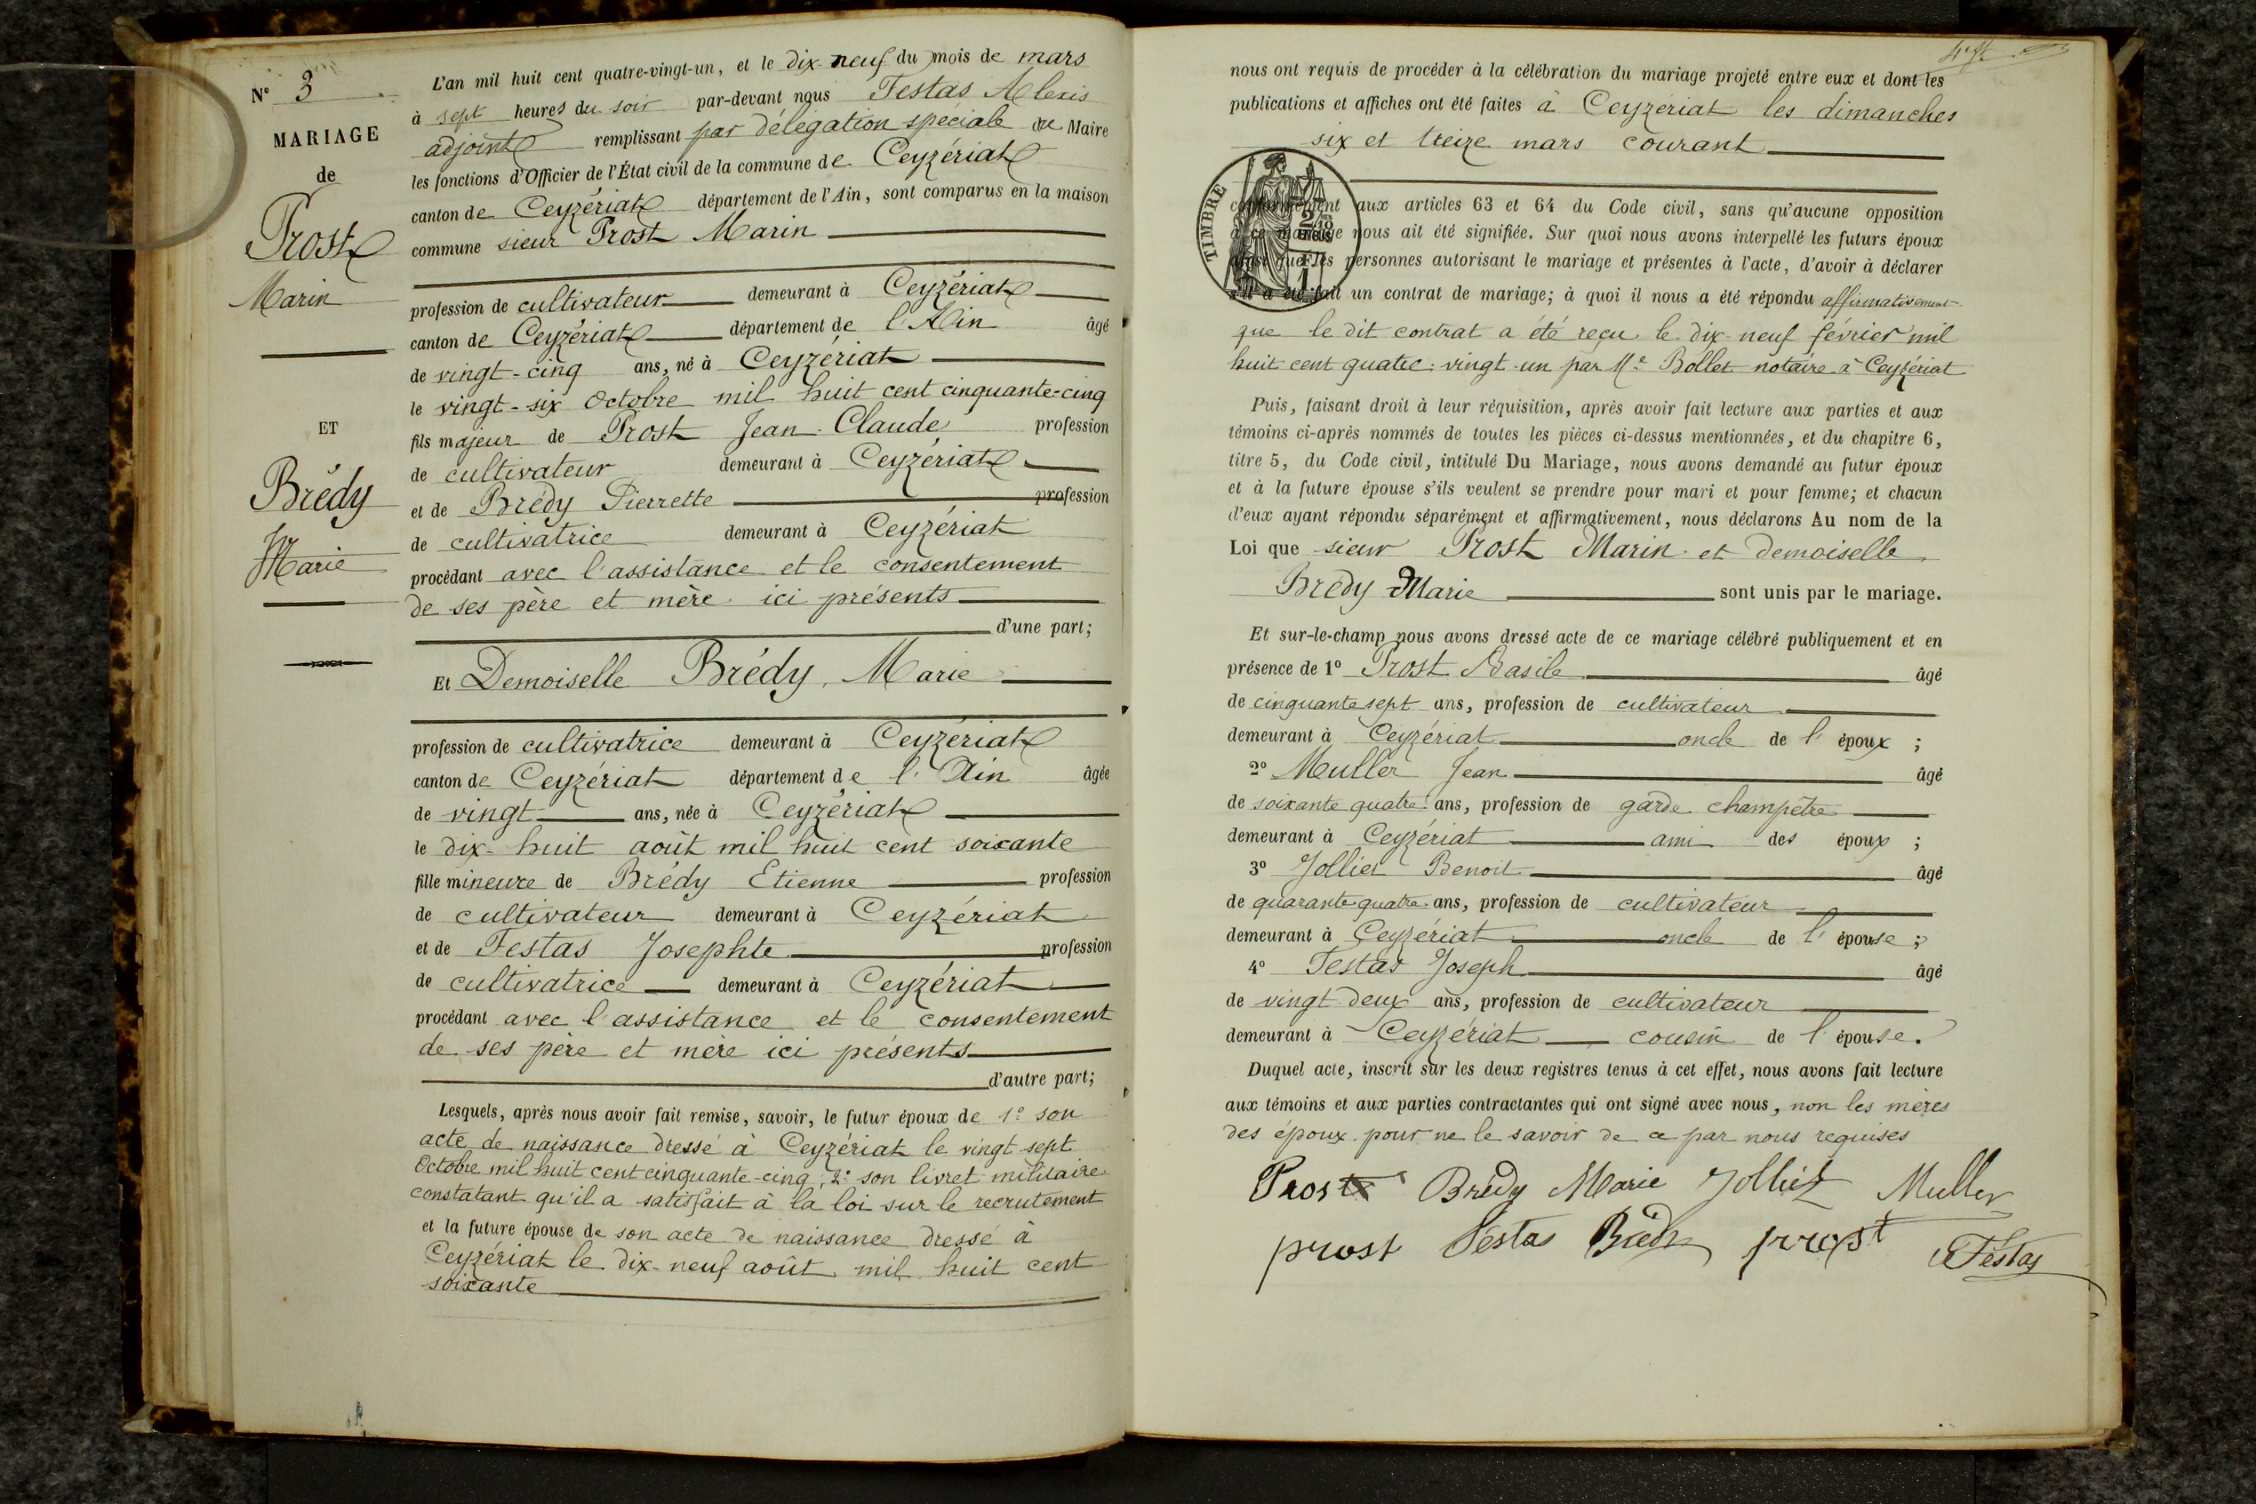 N° 3
MARIAGE
de
Prost
Marin
ET
Brédy
Marie
L'an mil huit cent quatre-vingt-un, et le dix-neuf du mois de mars
à sept heures du soir par-devant nous Festas Alexis
adjoint remplissant par délégation spéciale du Maire
les fonctions d'Officier de l'État civil de la commune de Ceyzériat
canton de Ceyzériat département de l'Ain, sont comparus en la maison
commune sieur Prost Marin
profession de cultivateur demeurant à Ceyzériat
canton de Ceyzériat département de l'Ain âgé
de vingt-cinq ans, né à Ceyzériat
le vingt-six Octobre mil huit cent cinquante-cinq
fils majeur de Prost Jean Claude profession
de cultivateur demeurant à Ceyzériat
et de Brédy Pierrette profession
de cultivatrice demeurant à Ceyzériat
procédant avec l'assistance et le consentement
de ses père et mère ici présents
d'une part;
Et Demoiselle Brédy, Marie
profession de cultivatrice demeurant à Ceyzériat
canton de Ceyzériat département de l'Ain âgée
de vingt ans, née à Ceyzériat
le dix-huit août mil huit cent soixante
fille mineure de Brédy Etienne profession
de cultivateur demeurant à Ceyzériat
et de Festas Josephte profession
de cultivatrice demeurant à Ceyzériat
procédant avec l'assistance et le consentement
de ses père et mère ici présents
d'autre part;
Lesquels, après nous avoir fait remise, savoir, le futur époux de 1° son
acte de naissance dressé à Ceyzériat le vingt sept
Octobre mil huit cent cinquante-cinq, 2° son livret militaire
constatant qu'il a satisfait à la loi sur le recrutement
et la future épouse de son acte de naissance dressé à
Ceyzériat le dix-neuf août mil huit cent
soixante
nous ont requis de procéder à la célébration du mariage projeté entre eux et dont les
publications et affiches ont été faites à Ceyzériat les dimanches
six et treize mars courant
TIMBRE
conformément aux articles 63 et 64 du Code civil, sans qu'aucune opposition
à ce mariage nous ait été signifiée. Sur quoi nous avons interpellé les futurs époux
ainsi que les personnes autorisant le mariage et présentes à l'acte, d'avoir à déclarer
s'il a été fait un contrat de mariage; à quoi il nous a été répondu affirmativement
que le dit contrat a été reçu le dix-neuf février mil
huit cent quatre-vingt-un par Me Bollet notaire à Ceyzériat
Puis, faisant droit à leur réquisition, après avoir fait lecture aux parties et aux
témoins ci-après nommés de toutes les pièces ci-dessus mentionnées, et du chapitre 6,
titre 5, du Code civil, intitulé Du Mariage, nous avons demandé au futur époux
et à la future épouse s'ils veulent se prendre pour mari et pour femme; et chacun
d'eux ayant répondu séparément et affirmativement, nous déclarons Au nom de la
Loi que sieur Prost Marin et demoiselle
Brédy Marie sont unis par le mariage.
Et sur-le-champ nous avons dressé acte de ce mariage célébré publiquement et en
présence de 1° Prost Basile âgé
de cinquante sept ans, profession de cultivateur
demeurant à Ceyzériat oncle de l'époux ;
2° Muller Jean âgé
de soixante quatre ans, profession de garde champêtre
demeurant à Ceyzériat ami des époux ;
3° Jolliet Benoit âgé
de quarante quatre ans, profession de cultivateur
demeurant à Ceyzériat oncle de l'épouse ;
4° Festas Joseph âgé
de vingt deux ans, profession de cultivateur
demeurant à Ceyzériat cousin de l'épouse.
Duquel acte, inscrit sur les deux registres tenus à cet effet, nous avons fait lecture
aux témoins et aux parties contractantes qui ont signé avec nous, non les mères
des époux pour ne le savoir de ce par nous requises
Prost Brédy Marie Jolliet Muller
prost Festas Brédy prost Festas